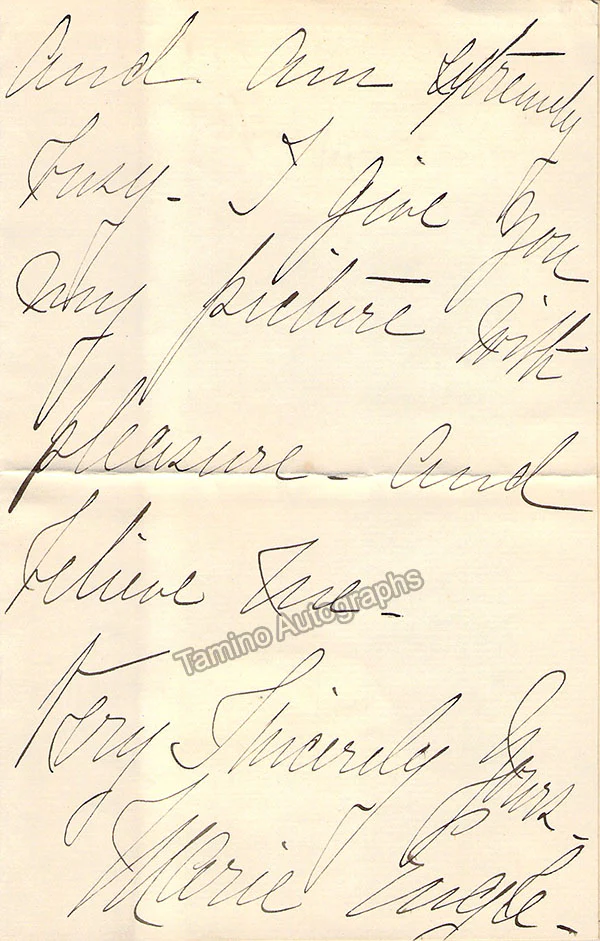 and am extremely
busy - I give you
my picture with
pleasure - and
believe me -
Tamino Autographs
Very Sincerely Yours -
Marie Engle -